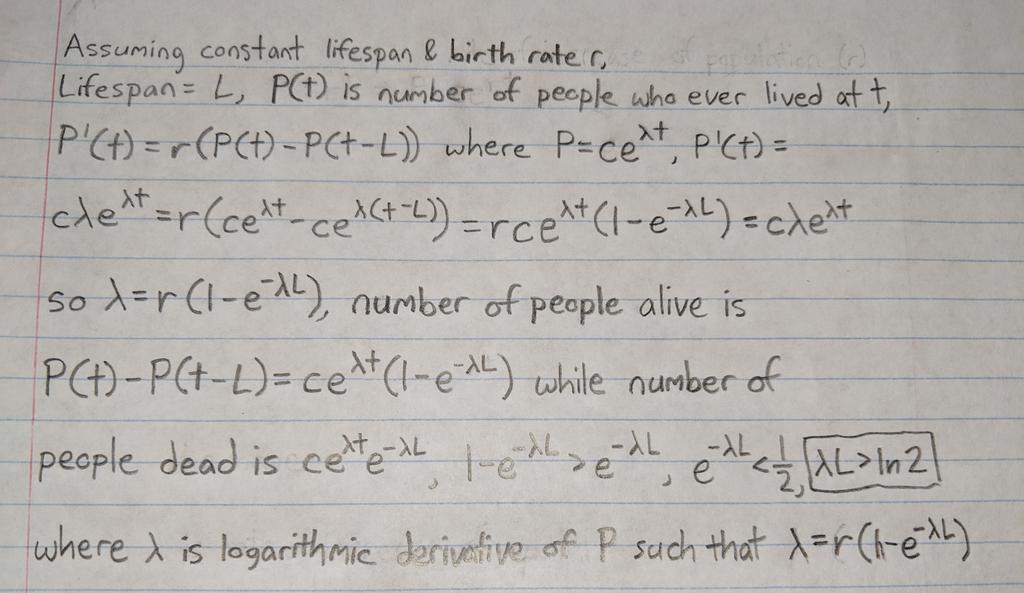 Assuming constant lifespan & birth rate r,
Lifespan = L, P(t) is number of people who ever lived at t,
P'(t) = r(P(t) - P(t-L)) where P = ce^λt, P'(t) =
cλe^λt = r(ce^λt - ce^λ(t-L)) = rce^λt(1-e^-λL) = cλe^λt
so λ = r(1-e^-λL), number of people alive is
P(t) - P(t-L) = ce^λt(1-e^-λL) while number of
people dead is ce^λt e^-λL, 1-e^-λL > e^-λL, e^-λL < 1/2, λL > ln 2
where λ is logarithmic derivative of P such that λ = r(1-e^-λL)